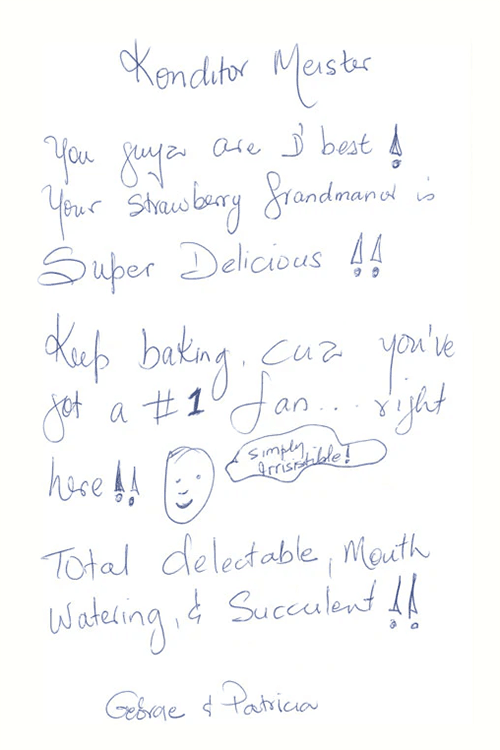 Konditor Meister
You guyz are D' best !
Your Strawberry Grandmanor is
Super Delicious !!
Keep baking, cuz you've
got a #1 fan... right
here !!
Simply
Irrisistible!
Total delectable, Mouth
Watering, & Succulent !!
George & Patricia